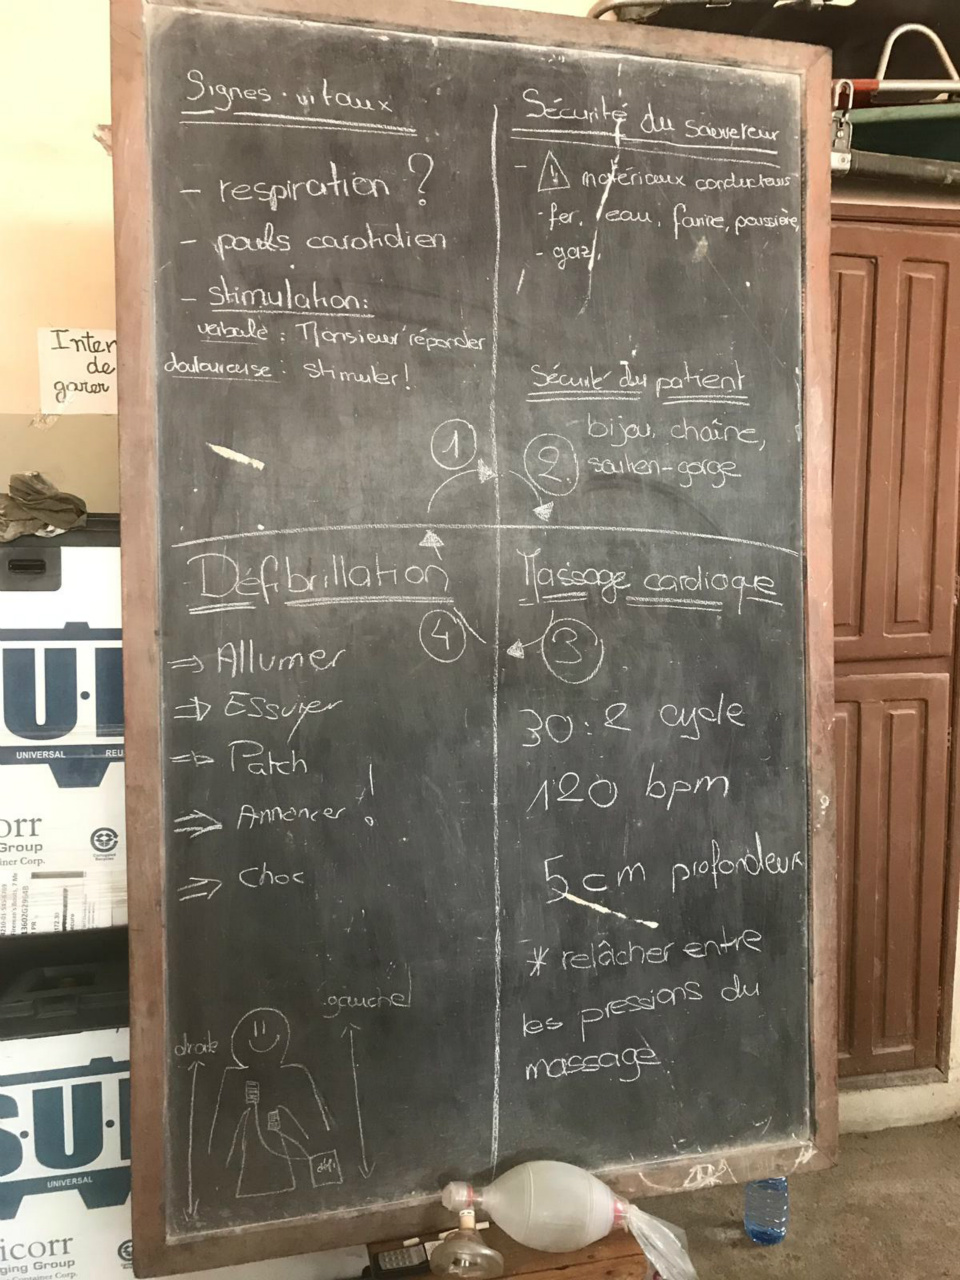 Signes vitaux
- respiration ?
- pouls carotidien
- stimulation:
verbale : Monsieur répondez
douloureuse : stimuler!
1
Sécurité du sauveteur
- ! matériaux conducteurs
- fer, eau, farine, poussière,
- gaz
Sécurité du patient
bijou, chaîne,
soutien-gorge
2
Massage cardiaque
3
30:2 cycle
120 bpm
5 cm profondeur
* relâcher entre
les pressions du
massage
Défibrillation
4
⇒ Allumer
⇒ Essuyer
⇒ Patch
⇒ Annoncer !
⇒ Choc
gauche
droite
défi
Inter
de
garer
U.
UNIVERSAL REU
orr
Group
iner Corp.
SU
UNIVERSAL
icorr
ging Group
Container Corp.